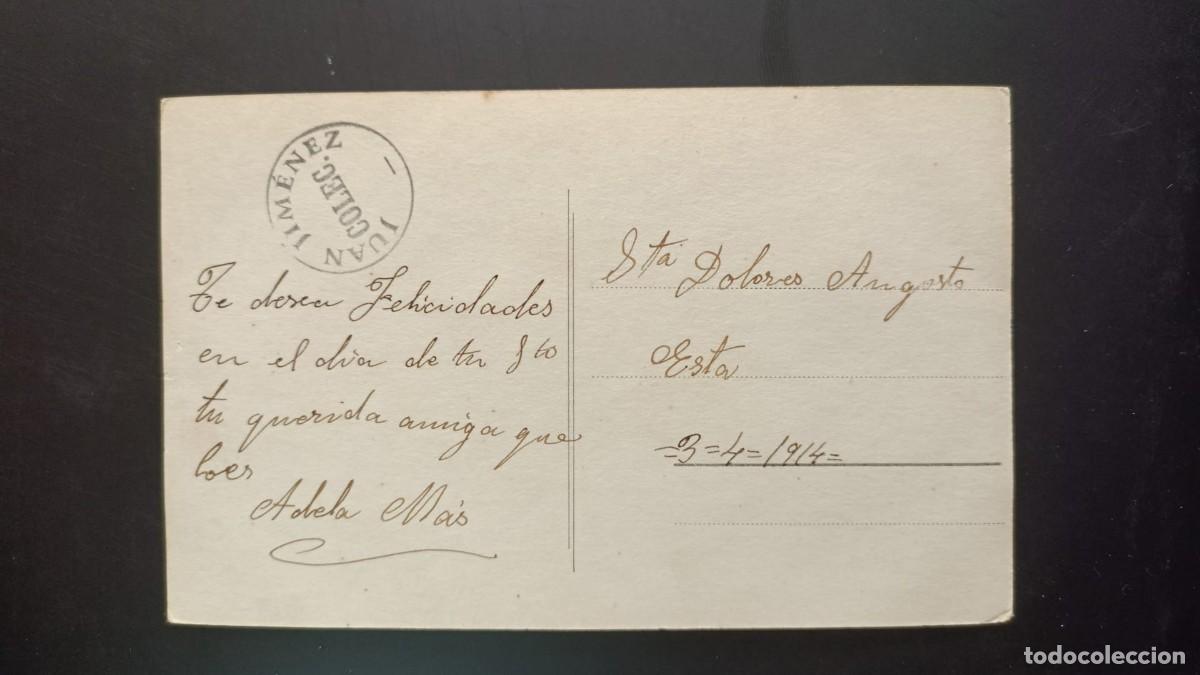 JUAN JIMÉNEZ
COLEC.
Te desea Felicidades
en el día de tu Sto
tu querida amiga que
loes
Adela Más
Sta Dolores Angosto
Esta
=3=4=1914=
todocoleccion